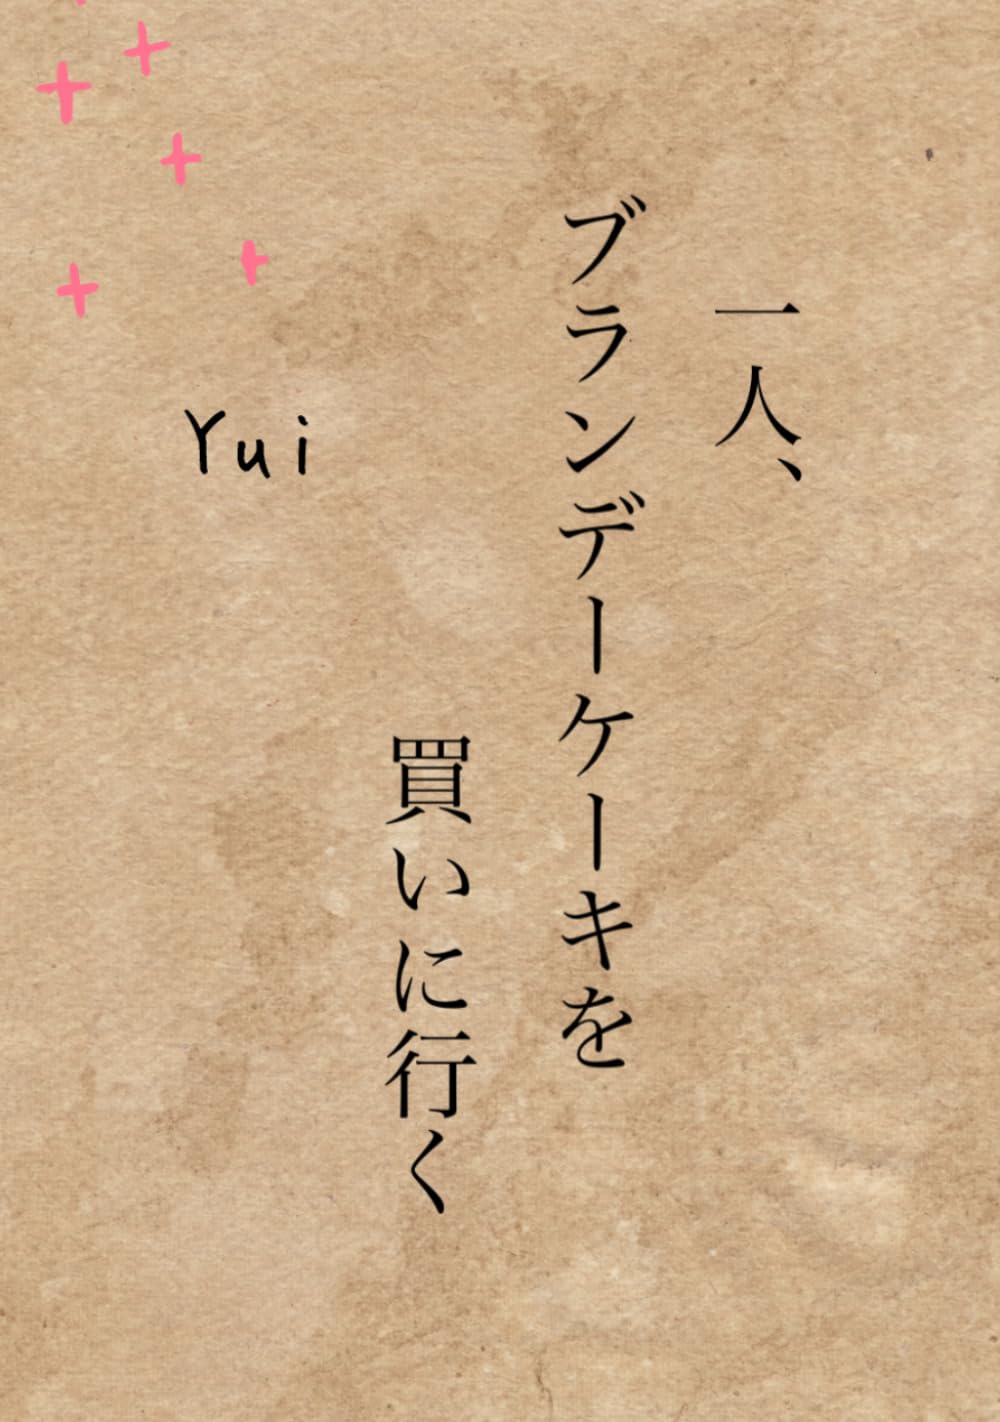 一人、
ブランデーケーキを
買いに行く
Yui